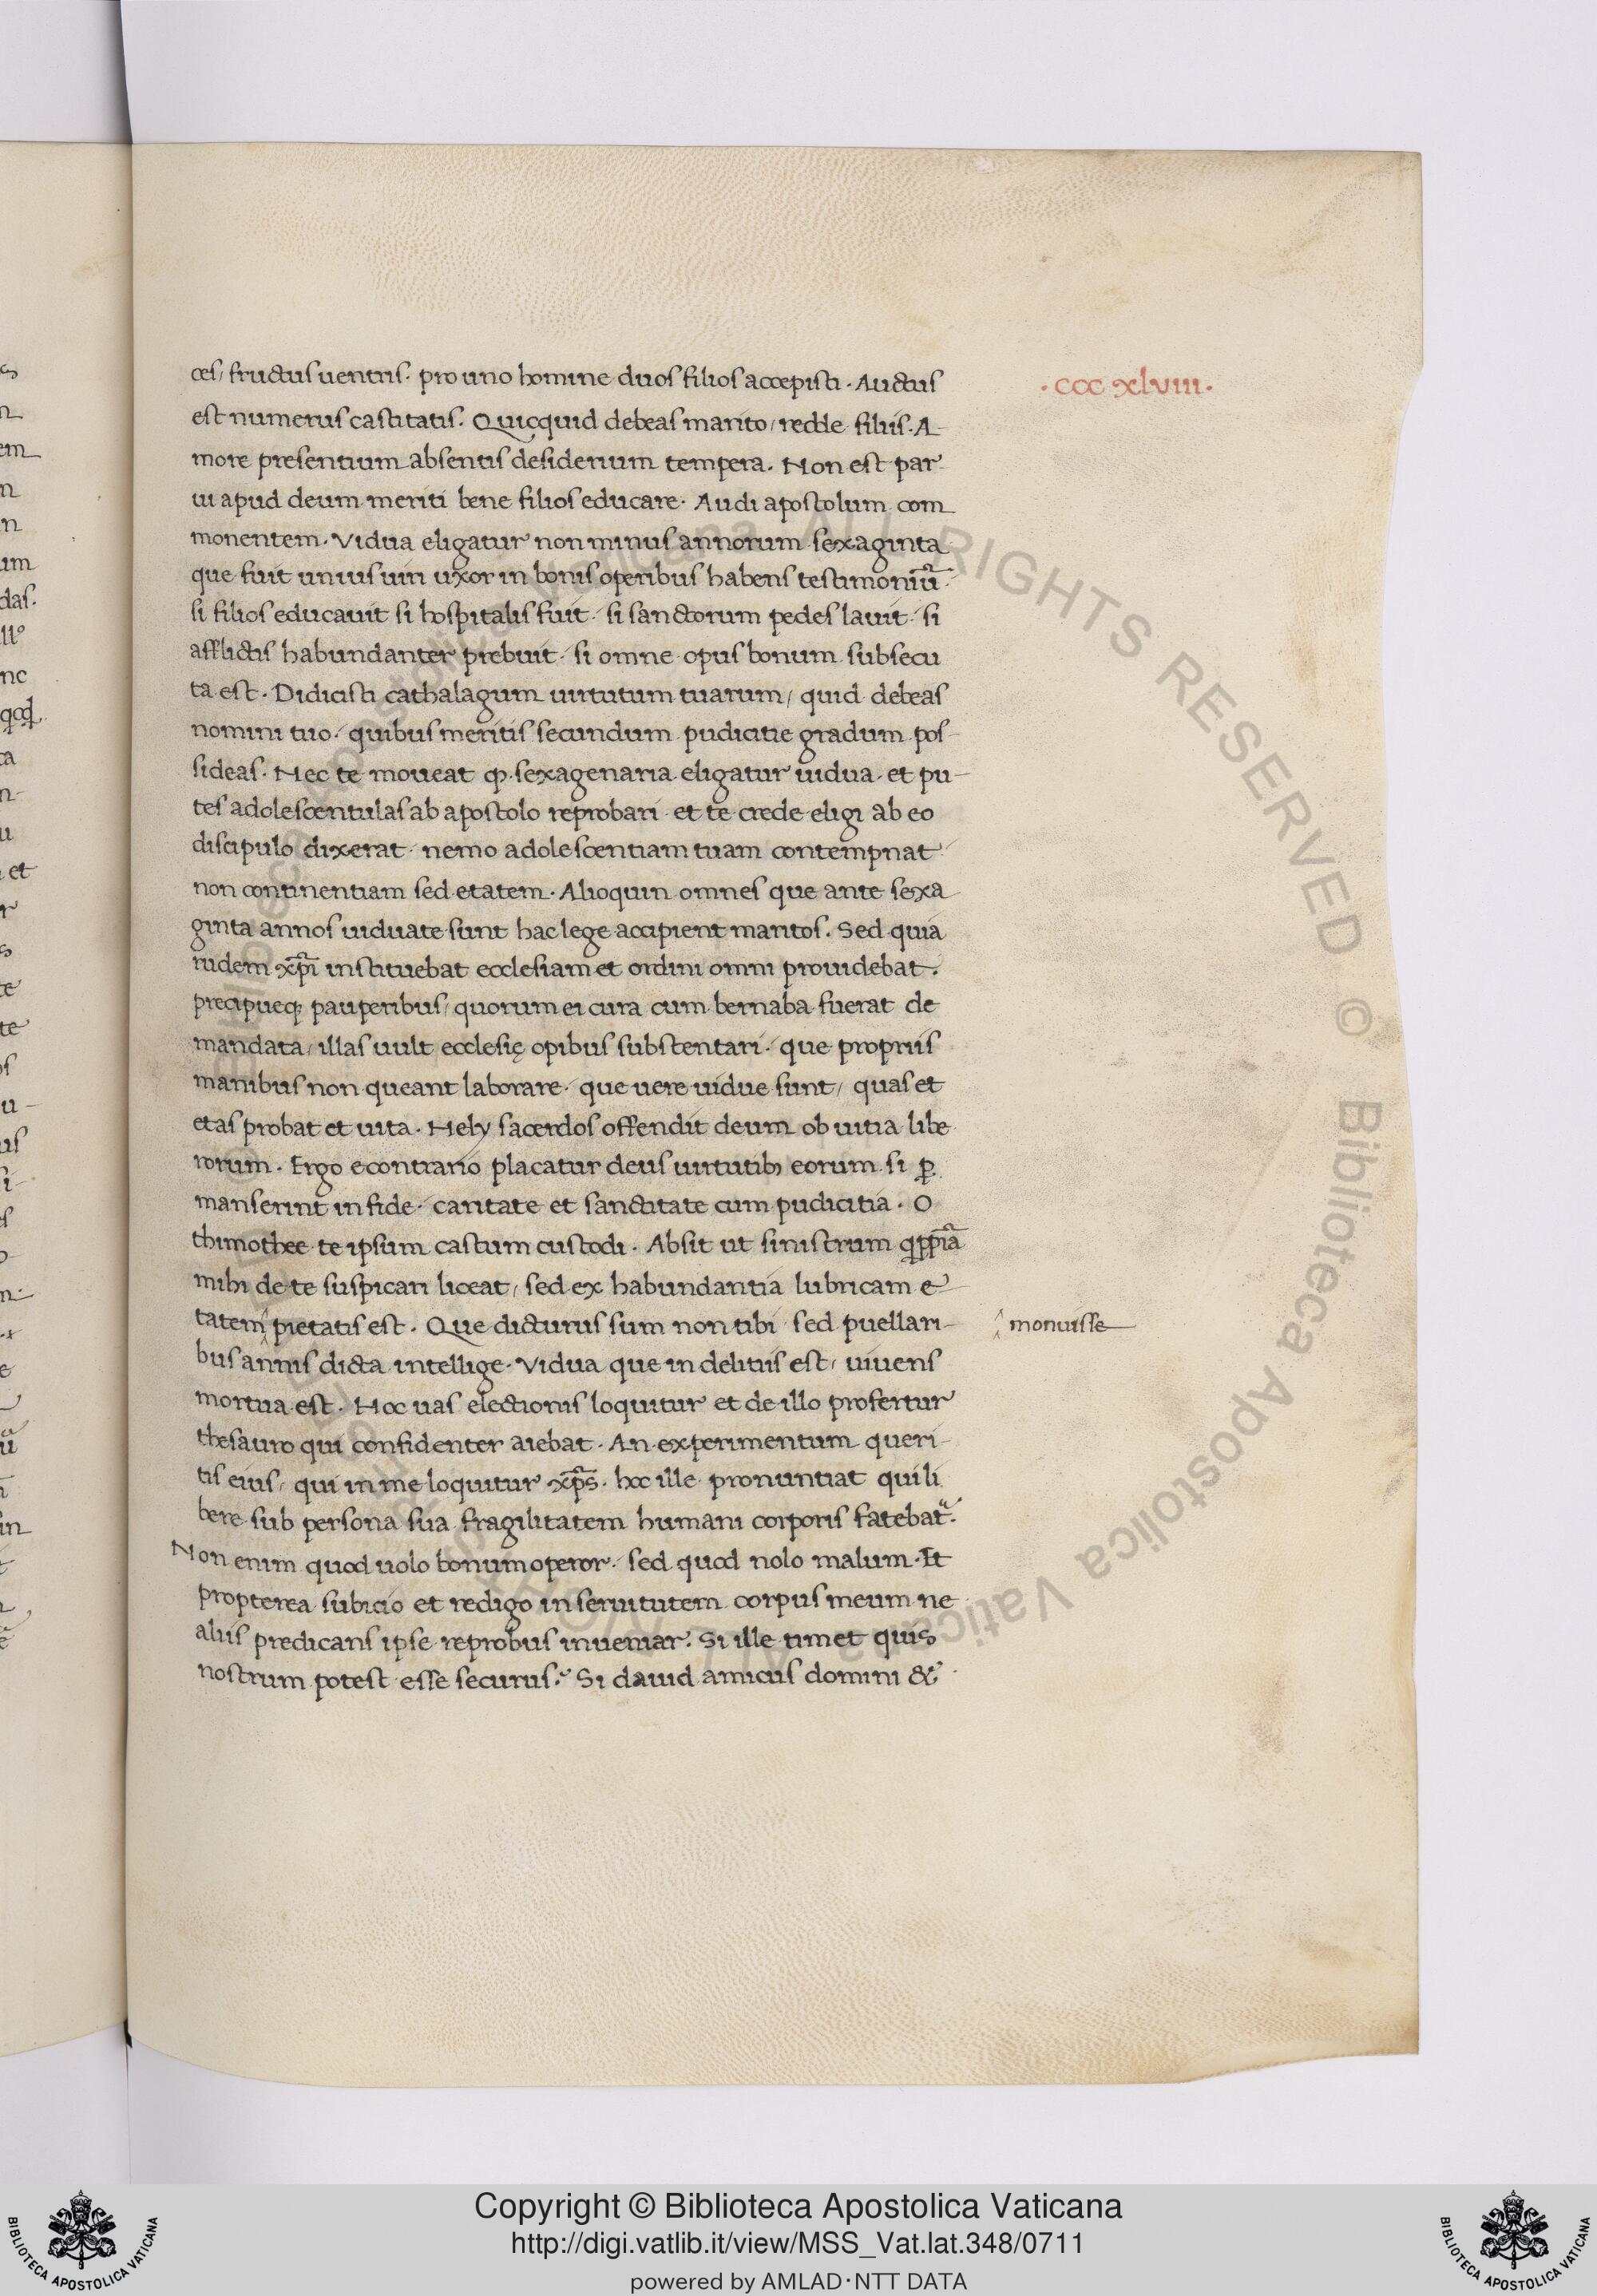 ces, fructus uentris. pro uno homine duos filios accepisti. Auctus
·ccc xlviii·
est numerus castitatis. Quicquid debeas marito, redde filiis. A-
more presentium absentis desiderium tempera. Non est par-
ui apud deum meriti bene filios educare. Audi apostolum com
monentem. Vidua eligatur non minus annorum sexaginta
que fuit unius uiri uxor in bonis operibus habens testimoniū.
si filios educauit si hospitalis fuit. si sanctorum pedes lauit. si
afflictis habundanter prebuit. si omne opus bonum subsecu
ta est. Didicisti cathalagum uirtutum tuarum, quid debeas
nomini tuo. quibus meritis secundum pudicitie gradum pos-
sideas. Nec te moueat ꝙ sexagenaria eligatur uidua. et pu-
tes adolescentulas ab apostolo reprobari. et te crede eligi ab eo
discipulo dixerat. nemo adolescentiam tuam contempnat.
non continentiam sed etatem. Alioquin omnes que ante sexa
ginta annos uiduate sunt hac lege accipient maritos. Sed quia
rudem xp̄i instituebat ecclesiam et ordini omni prouidebat.
precipueq; pauperibus, quorum ei cura cum bernaba fuerat de
mandata, illas uult ecclesię opibus substentari. que propriis
manibus non queant laborare. que uere uidue sunt, quas et
etas probat et uita. Hely sacerdos offendit deum ob uitia libe
rorum. Ergo econtrario placatur deus uirtutib; eorum si ꝑ
manserint in fide. caritate et sanctitate cum pudicitia. O
thimothee te ipsum castum custodi. Absit ut sinistrum qp̄piā
mihi de te suspicari liceat, sed ex habundantia lubricam e-
tatem pietatis est. Que dicturus sum non tibi sed puellari-
monuisse
bus annis dicta intellige. Vidua que in delitiis est, uiuens
mortua est. Hoc uas electionis loquitur et de illo profertur
thesauro qui confidenter aiebat. An experimentum queri-
tis eius, qui in me loquitur xp̄s. hoc ille pronuntiat qui li
bere sub persona sua fragilitatem humani corporis fatebat.
Non enim quod uolo bonum operor. sed quod nolo malum. Et
propterea subicio et redigo in seruitutem corpus meum ne
aliis predicans ipse reprobus inueniar. Si ille timet quis
nostrum potest esse securus? Si dauid amicus domini &
Copyright © Biblioteca Apostolica Vaticana
http://digi.vatlib.it/view/MSS_Vat.lat.348/0711
powered by AMLAD·NTT DATA